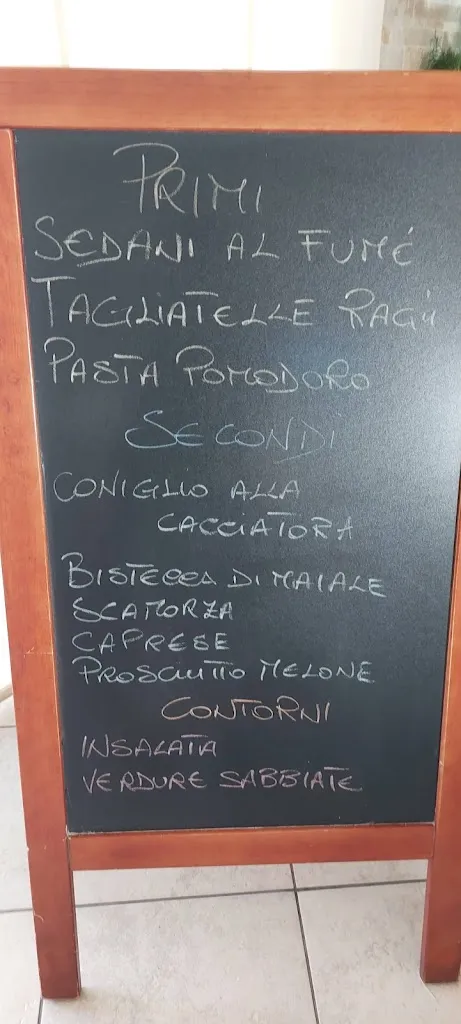 PRIMI
SEDANI AL FUMÉ
TAGLIATELLE RAGÙ
PASTA POMODORO
SECONDI
CONIGLIO ALLA
CACCIATORA
BISTECCA DI MAIALE
SCAMORZA
CAPRESE
PROSCIUTTO MELONE
CONTORNI
INSALATA
VERDURE SABBIATE